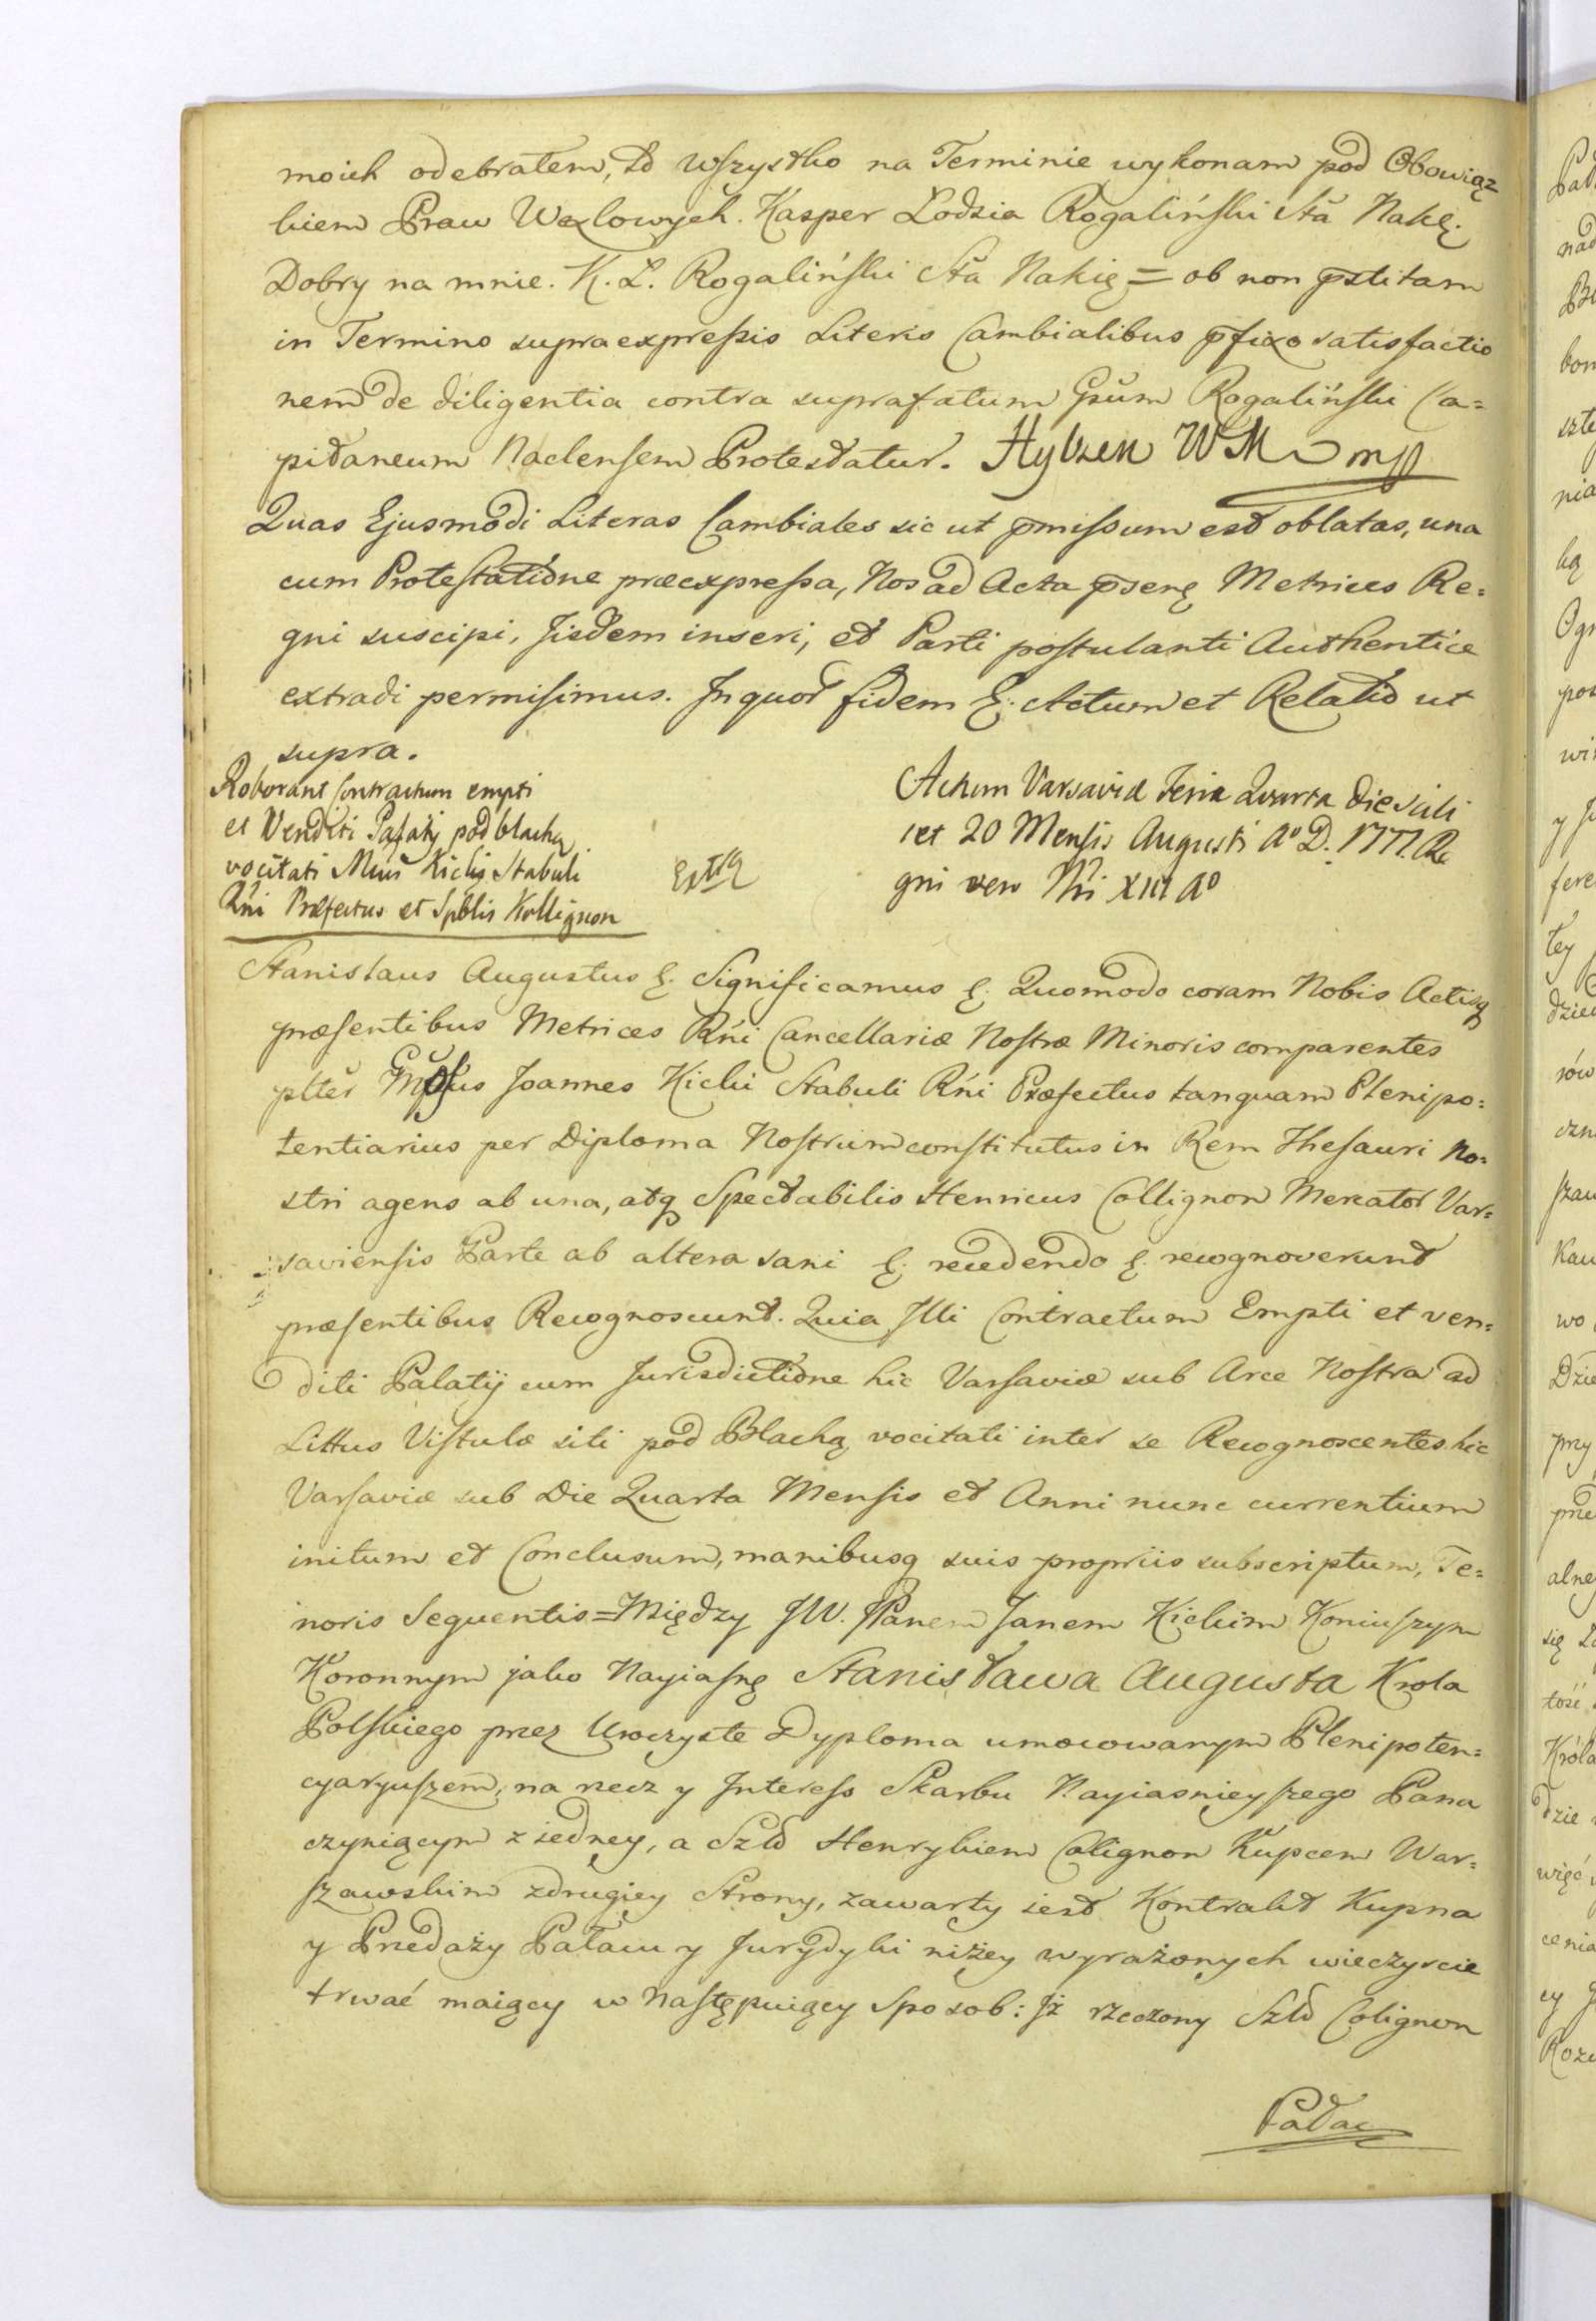 moich odebrałem, to wszystko na Terminie wykonam pod Obowiąz
kiem Praw Wexlowych. Kasper Lodzia Rogaliński Sta Nakę.
Dobry na mnie. K. L. Rogaliński Sta Nakię = ob non pstitam
in Termino supraexpressis Literis Cambialibus pfixo satisfactio
nem de diligentia contra suprafatum Gsum Rogaliński Ca=
pitaneum Naclensem Protestatur. Hylzen WM mp
Quas Ejusmodi Literas Cambiales sic ut pmissum est oblatas, una
cum Protestatione præexpressa, Nos ad Acta psenę Metrices Re=
gni suscipi, Jisdem inseri, et Parti postulanti Authentice
extradi permisimus. In quor fidem ę. Actum et Relatio ut
supra.
Roborant Contractum empti
et Venditi Pałatij pod blachą
vocitati Mcus Kickij Stabuli
Rni Præfectus et Spblis Kollignon
Extra
Actum Varsaviæ Feria Quarta die scili
cet 20 Mensis Augusti Aº D. 1777. Re
gni vero Nri XIII Aº
Stanislaus Augustus ę. Significamus ę. Quomodo coram Nobis Actisq
præsentibus Metrices Rni Cancellariæ Nostræ Minoris comparentes
plter Joannes Kicki Stabuli Rni Præfectus tanquam Plenipo=
tentiarius per Diploma Nostrum constitutus in Rem Thesauri No=
stri agens ab una, atq Spectabilis Henricus Collignon Mercator Var=
saviensis Parte ab altera sani ę. recedendo ę. recognoverunt
præsentibus Recognoscunt. Quia Illi Contractum Empti et ven=
diti Palatij cum Jurisdictione hic Varsaviæ sub Arce Nostra ad
Littus Vistulæ siti pod Blachą vocitati inter se Recognoscentes hic
Varsaviæ sub Die Quarta Mensis et Anni nunc currentium
initum et Conclusum, manibusq suis propriis subscriptum, Te=
noris Sequentis = Między JW. JPanem Janem Kickim Koniuszym
Koronnym jako Nayiasnę Stanisława Augusta Krola
Polskiego przez Uroczyste Dyploma umocowanym Plenipoten=
cyaryuszem, na rzecz y Interess Skarbu Nayiasnieyszego Pana
czyniącym z iedney, a Szld Henrykiem Colignon Kupcem War=
szawskim zdrugiey Strony, zawarty iest Kontrakt Kupna
y Przedaży Pałacu y Jurydyki niżey wyrażonych wieczyscie
trwać maiący w następuiący Sposob: Jż rzeczony Szld Colignon
Pałac